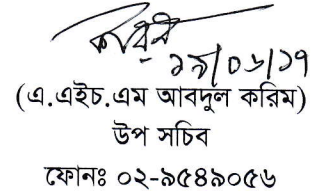 ১৯/০৬/১৭
(এ.এইচ.এম আবদুল করিম)
উপ সচিব
ফোনঃ ০২-৯৫৪৯০৫৬